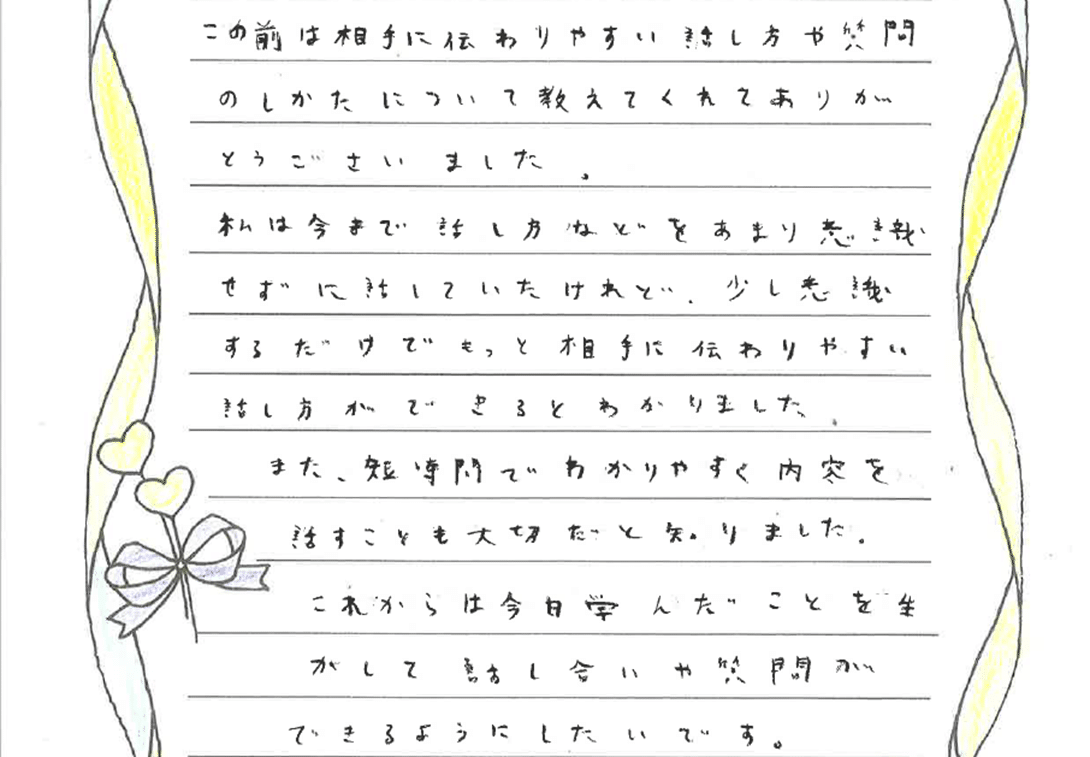 この前は相手に伝わりやすい話し方や質問
のしかたについて教えてくれてありが
とうございました。
私は今まで話し方などをあまり意識
せずに話していたけれど、少し意識
するだけでもっと相手に伝わりやすい
話し方ができるとわかりました。
また、短時間でわかりやすく内容を
話すことも大切だと知りました。
これからは今日学んだことを生
がして話し合いや質問が
できるようにしたいです。